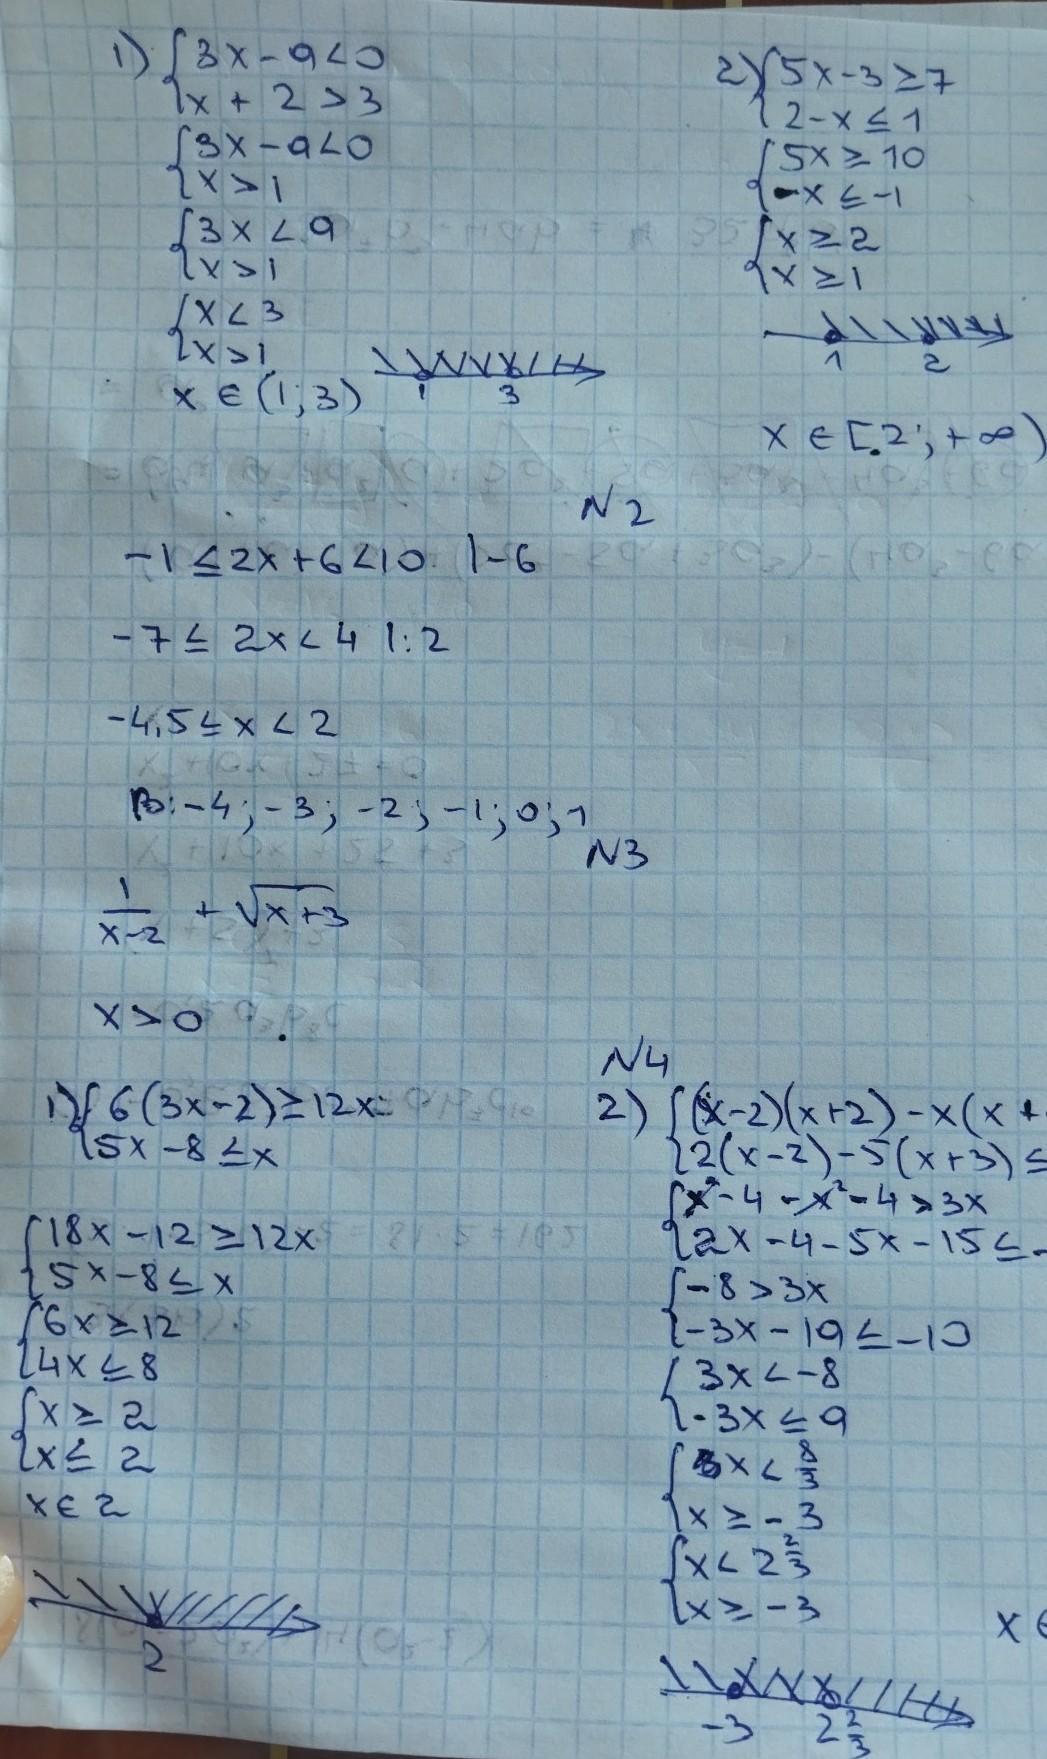 1) { 3x - 9 < 0
x + 2 > 3
{ 3x - 9 < 0
x > 1
{ 3x < 9
x > 1
{ x < 3
x > 1
x ∈ (1; 3)
1 3
2) { 5x - 3 ≥ 7
2 - x ≤ 1
{ 5x ≥ 10
-x ≤ -1
{ x ≥ 2
x ≥ 1
1 2
x ∈ [2; +∞)
N2
-1 ≤ 2x + 6 < 10 | -6
-7 ≤ 2x < 4 | : 2
-4,5 ≤ x < 2
В: -4; -3; -2; -1; 0; 1
N3
1/(x-2) + √(x+3)
x > 0
N4
1) { 6(3x-2) ≥ 12x
5x - 8 ≤ x
{ 18x - 12 ≥ 12x
5x - 8 ≤ x
{ 6x ≥ 12
4x ≤ 8
{ x ≥ 2
x ≤ 2
x ∈ 2
2
2) { (x-2)(x+2) - x(x +
2(x-2) - 5(x+3) ≤
{ x² - 4 - x² - 4 > 3x
2x - 4 - 5x - 15 ≤ -
{ -8 > 3x
-3x - 19 ≤ -10
{ 3x < -8
-3x ≤ 9
{ x < 8/3
x ≥ -3
{ x < 2 2/3
x ≥ -3
x ∈
-3 2 2/3